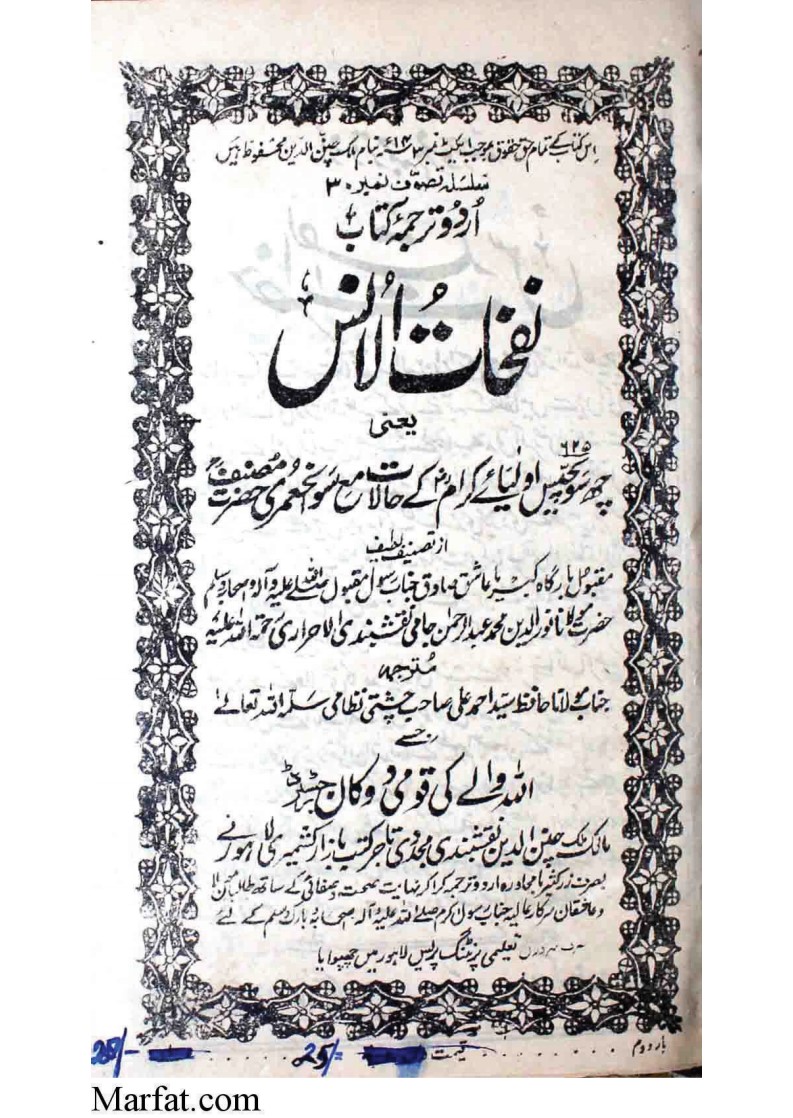 اس کتاب کے تمام حق حقوق بموجب ایکٹ نمبر ۳ ۱۹۱۴ء بنام ملک چنن الدین محفوظ ہیں
سلسلہ تصوف نمبر ۳۰
اُردو ترجمۂ کتاب
نفحاتُ الاُنس
یعنی
۶۲۵
چھ سو پچیس اولیائے کرامؒ کے حالات مع سوانحعمری حضرت مصنفؒ
از تصنیف لطیف
مقبول بارگاہ کبریا عاشق صادق جناب رسول مقبول صلے اللہ علیہ وآلہ واصحابہ وسلم
حضرت مولانا نورالدین محمد عبدالرحمٰن جامی نقشبندی الاحراری رحمۃ اللہ علیہ
مُترجمہ
جناب مولانا حافظ سید احمد علی صاحب چشتی نظامی سلمہ اللہ تعالےٰ
جسے
اللہ والے کی قومی دوکان رجسٹرڈ
مالک ملک چنن الدین نقشبندی مجددی تاجر کتب بازار کشمیری لاہور نے
بصرف زر کثیر بامحاورہ اردو ترجمہ کرا کر نہایت صحت و صفائی کے ساتھ طالبان
و عاشقان سرکار عالیہ جناب رسول اکرم صلے اللہ علیہ وآلہ واصحابہ بارک وسلم کے لئے
تعلیمی پرنٹنگ پریس لاہور میں چھپوایا
بار دوم
قیمت 25/=
25/-
Marfat.com